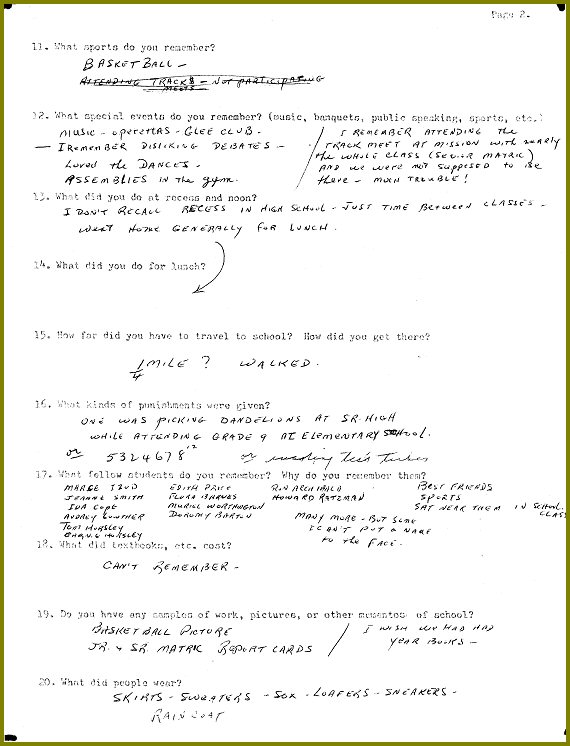 Page 2.
11. What sports do you remember?
BASKETBALL -
ATTENDING TRACKS - NOT PARTICIPATING
MEETS -
12. What special events do you remember? (music, banquets, public speaking, sports, etc.)
MUSIC - OPERETTAS - GLEE CLUB.
- I REMEMBER DISLIKING DEBATES -
LOVED the DANCES -
ASSEMBLIES IN the gym.
I REMEMBER ATTENDING the
TRACK MEET AT MISSION WITH NEARLY
the WHOLE CLASS (SENIOR MATRIC)
AND WE WERE NOT SUPPOSED TO BE
there - MUCH TROUBLE!
13. What did you do at recess and noon?
I DON'T RECALL RECESS IN HIGH SCHOOL - JUST TIME BETWEEN CLASSES -
WENT HOME GENERALLY FOR LUNCH.
14. What did you do for lunch?
15. How far did you have to travel to school? How did you get there?
1/4 MILE? WALKED.
16. What kinds of punishments were given?
ONE WAS PICKING DANDELIONS AT SR. HIGH
WHILE ATTENDING GRADE 9 AT ELEMENTARY SCHOOL.
or 5324678 12 or
17. What fellow students do you remember? Why do you remember them?
MARGE IZUD EDITH PRICE RON ARCHIBALD BEST FRIENDS
JEANNE SMITH FLORA BARNES HOWARD SPORTS
IDA COPE MURIEL WORTHINGTON SAT NEAR THEM IN SCHOOL.
CLASS
AUDREY DOROTHY BARTON MANY MORE - BUT SOME
TOM HORSLEY I CAN'T PUT A NAME
HORSLEY TO the FACE.
18. What did textbooks, etc. cost?
CAN'T REMEMBER -
19. Do you have any samples of work, pictures, or other mementos of school?
BASKETBALL PICTURE
JR. & SR. MATRIC REPORT CARDS
I WISH WE HAD HAD
YEAR BOOKS -
20. What did people wear?
SKIRTS - SWEATERS - SOX - LOAFERS - SNEAKERS -
RAINCOAT